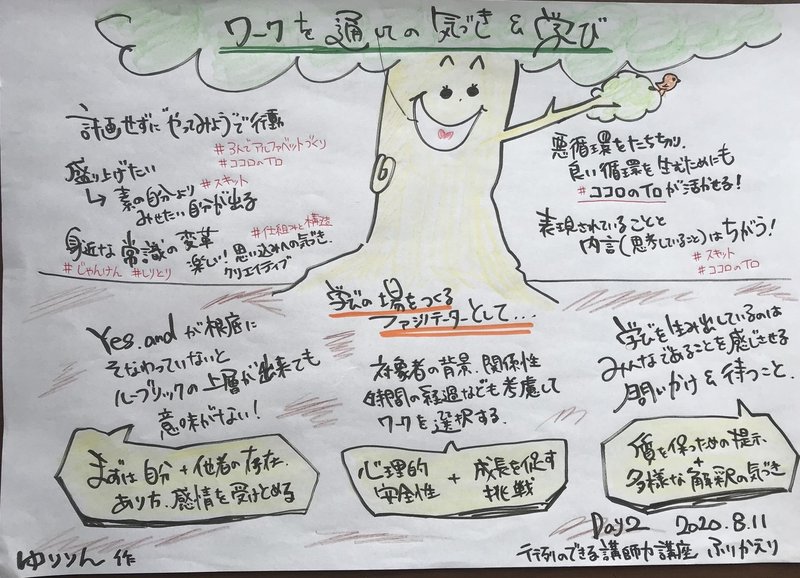 ワークを通しての気づき&学び
計画せずに"やってみよう"で行動
#3人でアルファベットづくり
#ココロのTO
盛り上げたい
#スキット
↳素の自分より
みせたい自分が出る
#仕組みと構造
身近な常識の変革
楽しい! 思い込みへの気づき.
クリエイティブ
#じゃんけん #しりとり
悪循環をたちきり,
良い循環を生むためにも
#ココロのTOが活かせる!
表現されていることと
内言(思考していること)はちがう!
#スキット
#ココロのTO
学びの場をつくる
ファシリテーターとして...
Yes.andが根底に
そなわっていないと
ルーブリックの上層が出来ても
意味がない!
まずは自分+他者の存在.
あり方.感情を受けとめる
対象者の背景.関係性
時間の経過なども考慮して
ワークを選択する.
心理的安全性 + 成長を促す挑戦
学びを生み出しているのは
みんなであることを感じさせる
問いかけ&待つこと.
質を保つための提示.
+
多様な解釈の気づき
Day2 2020.8.11
行列のできる講師力講座 ふりかえり
ゆりりん 作